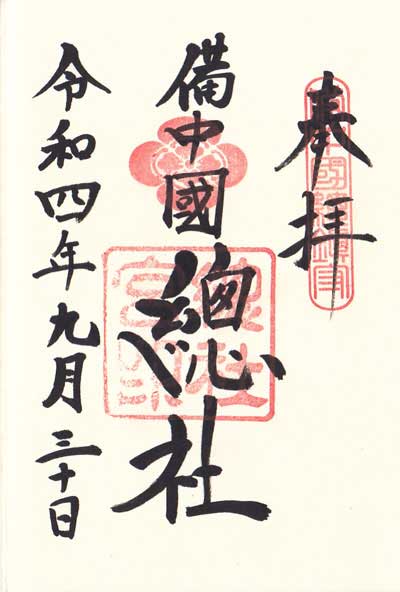 奉拝
備中國
總社
令和四年九月三十日
總社宮印